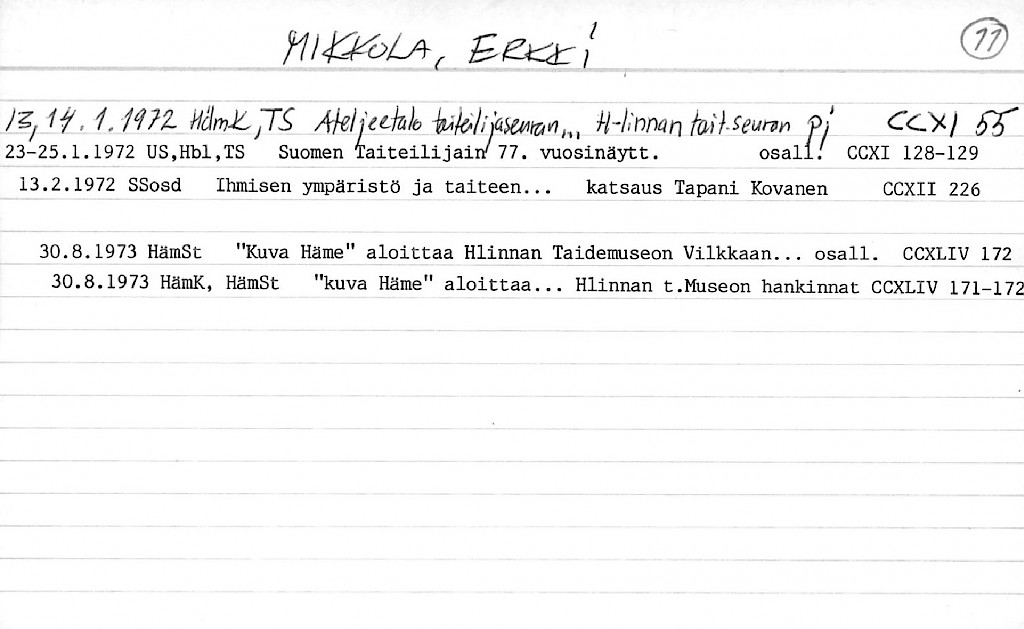 MIKKOLA, ERKKI
11
13, 14.1.1972 HämK, TS Ateljeetalo taiteilijaseuran... H-linnan tait.seuran pj CCXI 55
23-25.1.1972 US,Hbl,TS Suomen Taiteilijain 77. vuosinäytt. osall. CCXI 128-129
13.2.1972 SSosd Ihmisen ympäristö ja taiteen... katsaus Tapani Kovanen CCXII 226
30.8.1973 HämSt "Kuva Häme" aloittaa Hlinnan Taidemuseon Vilkkaan... osall. CCXLIV 172
30.8.1973 HämK, HämSt "kuva Häme" aloittaa... Hlinnan t.Museon hankinnat CCXLIV 171-172